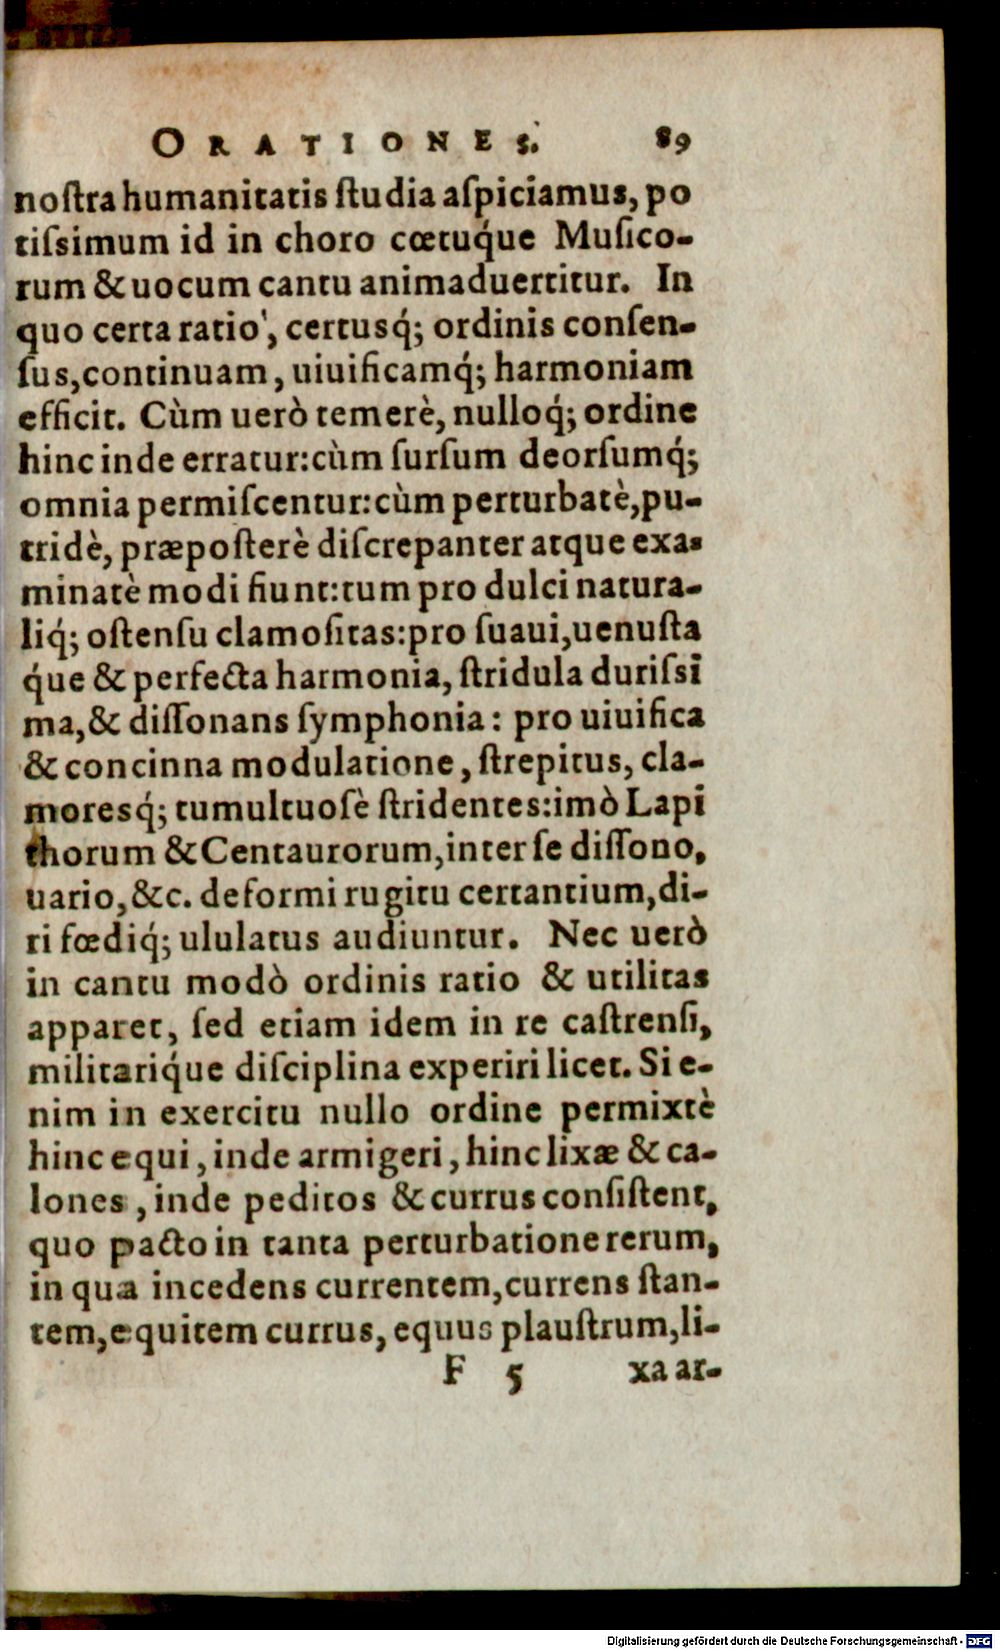 ORATIONES. 89
noſtra humanitatis ſtudia aſpiciamus, po
tiſsimum id in choro cœtuq́ue Muſico-
rum & uocum cantu animaduertitur. In
quo certa ratio', certusq́; ordinis conſen-
ſus, continuam, uiuificamq́; harmoniam
efficit. Cùm uerò temerè, nulloq́; ordine
hinc inde erratur: cùm ſurſum deorſumq́;
omnia permiſcentur: cùm perturbatè, pu-
tridè, præpoſterè diſcrepanter atque exa-
minatè modi fiunt: tum pro dulci natura-
liq́; oſtenſu clamoſitas: pro ſuaui, uenuſta
q́ue & perfecta harmonia, ſtridula duriſsi
ma, & diſſonans ſymphonia: pro uiuifica
& concinna modulatione, ſtrepitus, cla-
moresq́; tumultuoſè ſtridentes: imò Lapi
thorum & Centaurorum, inter ſe diſſono,
uario, &c. deformi rugitu certantium, di-
ri fœdiq́; ululatus audiuntur. Nec uerò
in cantu modò ordinis ratio & utilitas
apparet, ſed etiam idem in re caſtrenſi,
militariq́ue diſciplina experiri licet. Si e-
nim in exercitu nullo ordine permixtè
hinc equi, inde armigeri, hinc lixæ & ca-
lones, inde peditos & currus conſiſtent,
quo pacto in tanta perturbatione rerum,
in qua incedens currentem, currens ſtan-
tem, equitem currus, equus plauſtrum, li-
F 5 xa ar-
Digitalisierung gefördert durch die Deutsche Forschungsgemeinschaft - DFG